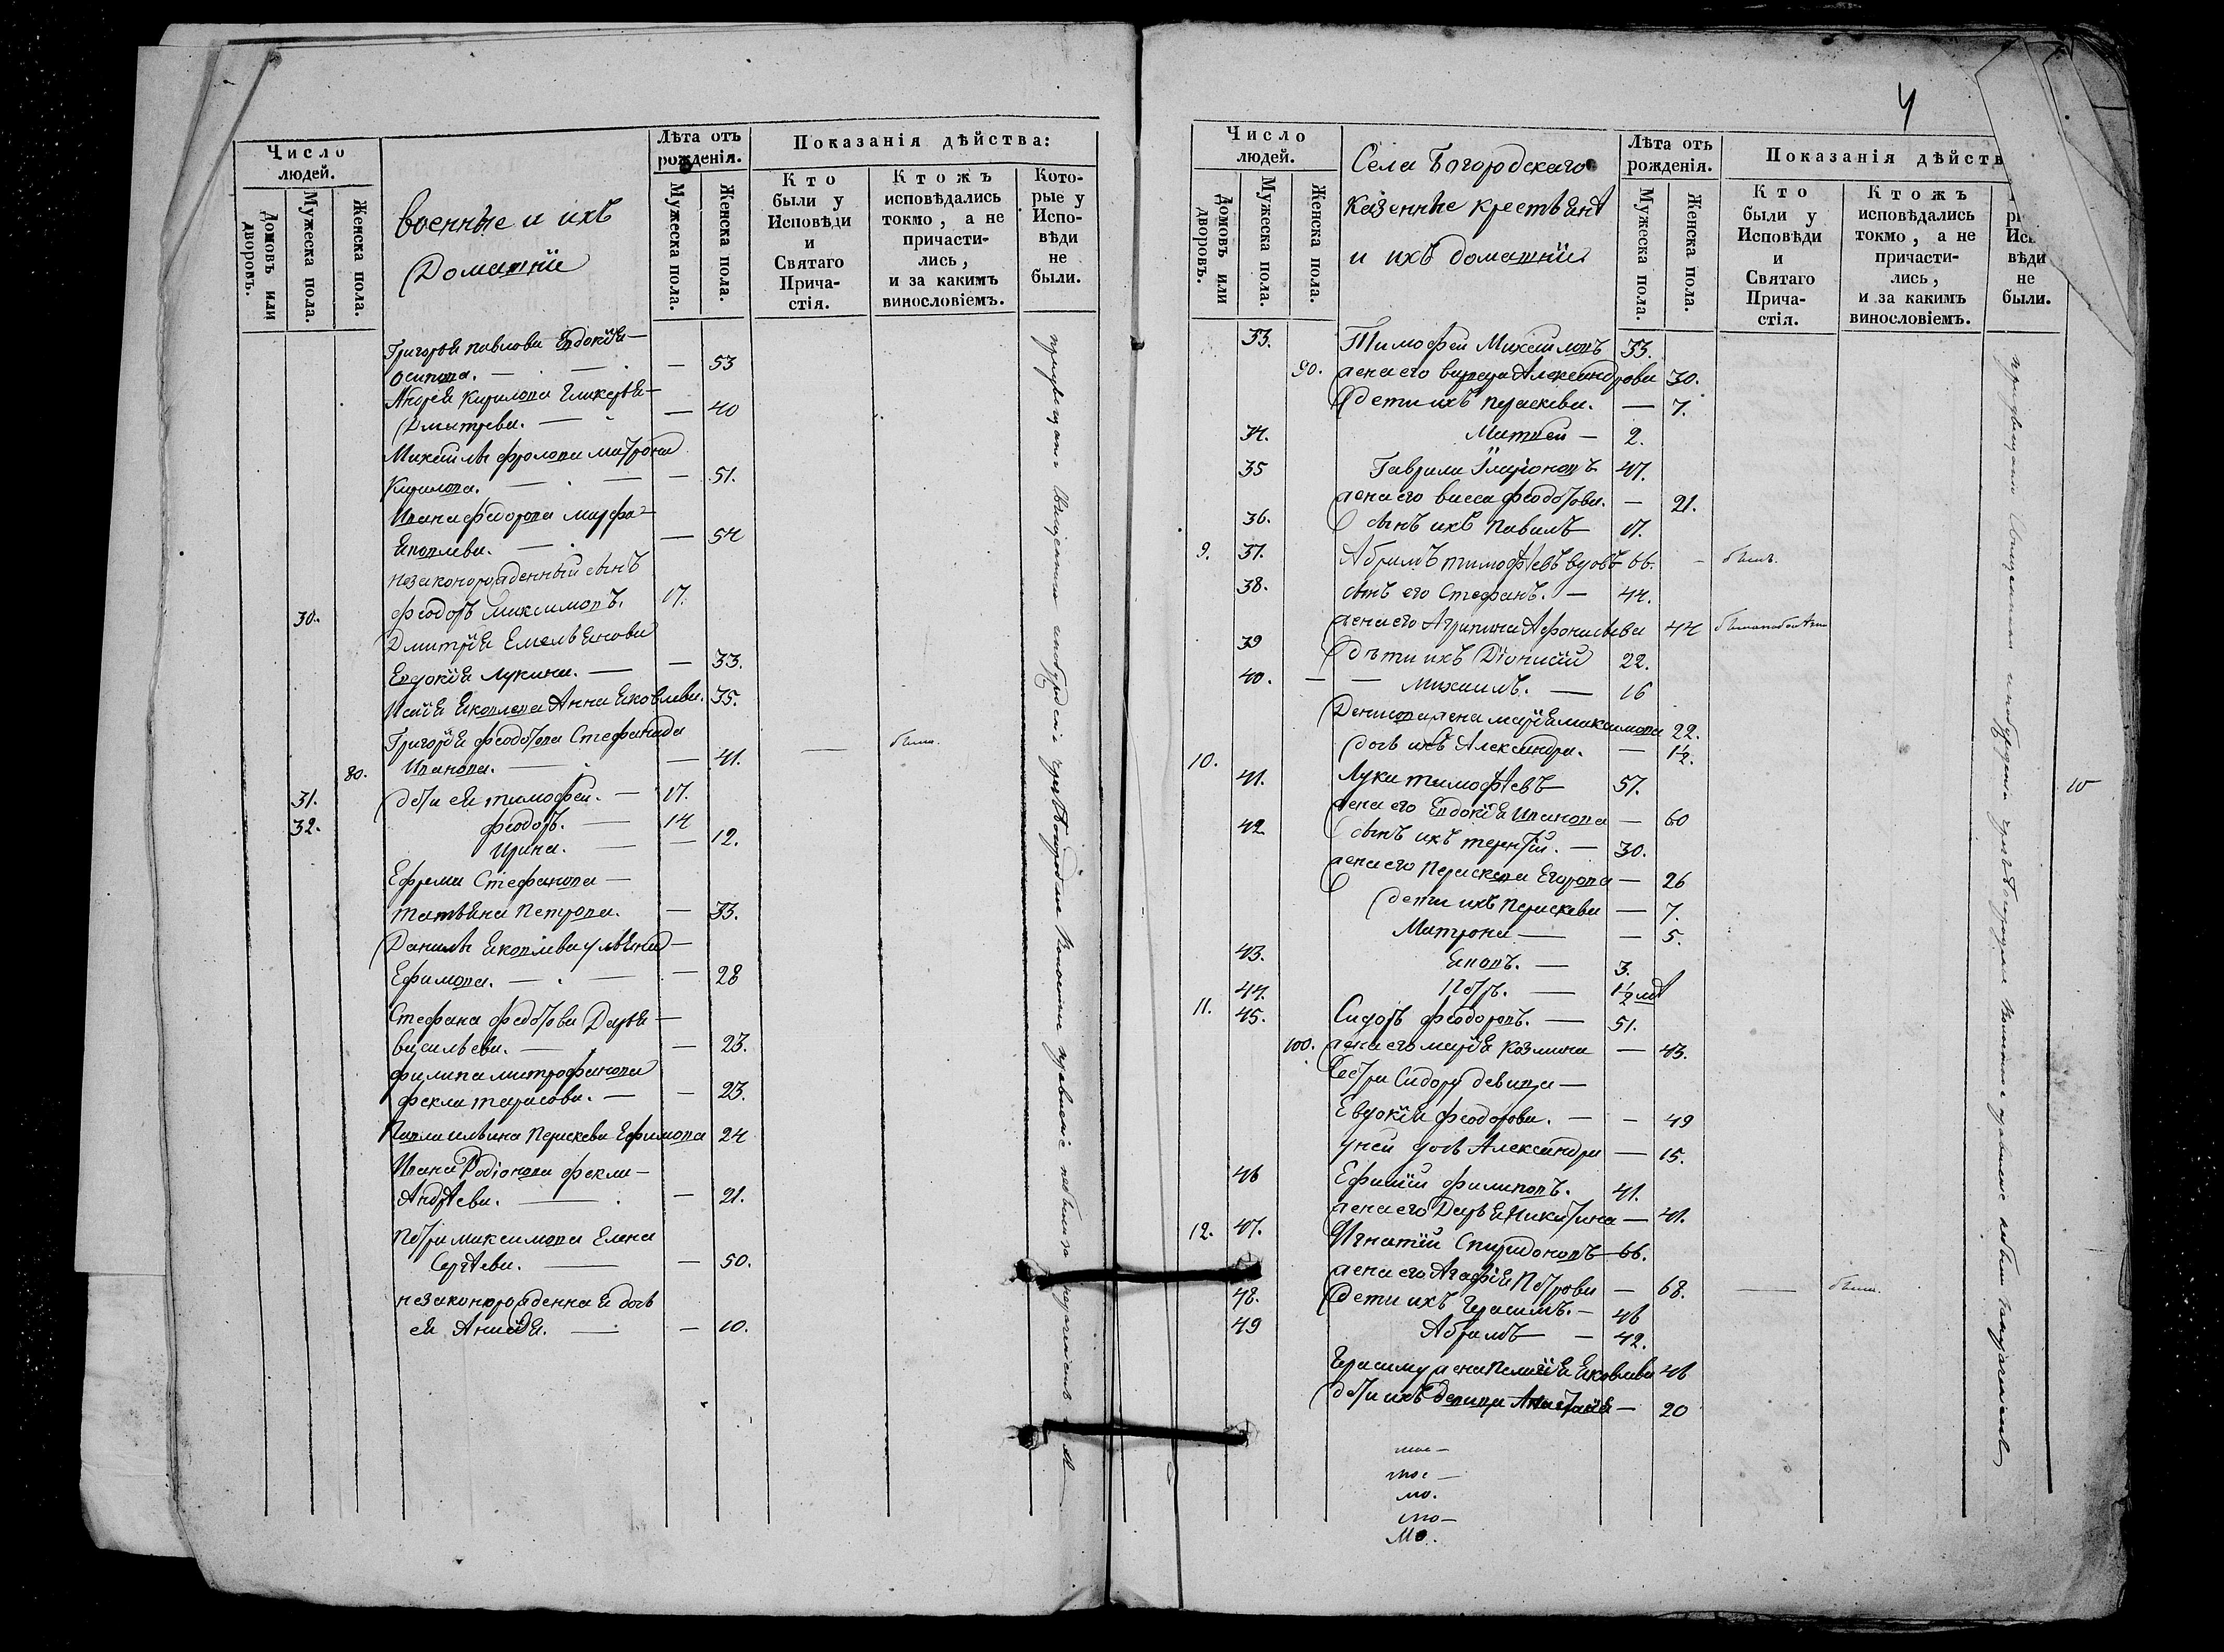 Число людей.
Домовъ или дворовъ.
Мужеска пола.
Женска пола.
военные и ихъ
Домашніе
Лѣта отъ рожденія.
Мужеска пола.
Женска пола.
Показанія дѣйства:
Кто были у Исповѣди и Святаго Прича-стія.
Ктожъ исповѣдались токмо, а не причасти-лись, и за какимъ винословіемъ.
Кото-рые у Испо-вѣди не были.
Григорья павлова Евдокія —
осипова. — — — 53
Андрея Кирилова Гликерья —
Дмытрева. — — 40
Михаилы фролова матрона
Кирилова. — — — 51.
Ивана федорова марфа —
Яковлева. — — 54
незаконорожденный сынъ
30. феодоръ максимовъ. 17.
Дмитрія Емельянова
Евдокія Лукина. — — 33.
Исаія Яковлева Анна Яковлева. 35.
Григорія феодотова Стефанида
80. Иванова. — — 41. — была.
31. дети ея тимофей. — 17.
32. феодоръ. — 14
Ирина. — — 12.
Ефрема Стефанова —
татьяна Петрова. — 33.
Данилы Яковлева ульяна —
Ефимова. — — — 28
Стефана федотова Дарья —
васильева. — — 23.
филипа митрофанова
фекла тарасова. — — 23.
Павла ильина Параскева Ефимова 24
Ивана Родіонова фекла —
Андреева. — — 21.
Петра максимова Елена
Сергѣева. — — 50.
незаконорожденная дочь
ея Анисія. — — 10.
4
Число людей.
Домовъ или дворовъ.
Мужеска пола.
Женска пола.
Села Богородскаго
казенные крестьянѣ
и ихъ домашніе
Лѣта отъ рожденія.
Мужеска пола.
Женска пола.
Показанія дѣйств
Кто были у Исповѣди и Святаго Прича-стія.
Ктожъ исповѣдались токмо, а не причасти-лись, и за какимъ винословіемъ.
вѣди не были.
33. Тимофей Михаиловъ 33.
90. жена его варвара Александрова 30.
дети ихъ параскева. — 7.
34. Матвей — 2.
35 Гаврила Иларіоновъ 47.
жена его васса феодотова. — 21.
36. сынъ ихъ павилъ 17.
9. 37. Абрамъ тимофѣевъ вдовъ 66. — былъ.
38. сынъ его Стефанъ. — 44.
жена его Агрипина Афонасьева 44
39 дѣти ихъ Діонисій 22.
40. — — михаилъ. — 16
Дениса жена марія максимова 22.
дочь ихъ Александра. — 1½.
10. 41. Лука тимофѣевъ 57.
жена его Евдокія Иванова — 60
42 сынъ ихъ терентій. — 30.
жена его Параскева Егорова — 26
дети ихъ параскева — 7.
Матрона — — 5.
43. Яковъ. — 3.
44. Петръ. — 1½
11. 45. Сидоръ феодоровъ. — 51.
100. жена его марія козмина — 43.
сестра Сидору девица —
Евдокія феодорова. — — 49
у ней дочь Александра — 15.
46 Ефимій филиповъ. 41.
жена его Дарья Никитина — 41.
12. 47. Игнатій Спиридоновъ 66.
жена его Агафія Петрова — 68. — была.
48. дети ихъ Герасимъ. — 46
49 Абрамъ — — 42.
Герасиму жена Пелагія Яковлева 46
дети ихъ девица Анастасія — 20
10